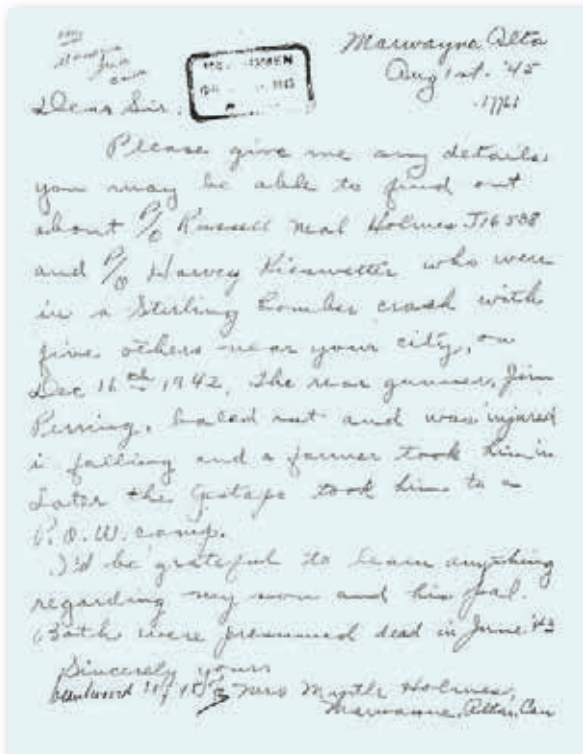 Marwayne Alta
Aug 1st. '45
Dear Sir,
Please give me any details
you may be able to find out
about P/O Russell Neal Holmes J16508
and P/O Harvey Kieswetter who were
in a Stirling bomber crash with
five others near your city, on
Dec 16th 1942. The rear gunner, Jim
Perring, baled out and was injured
i falling and a farmer took him in
Later the Gestapo took him to a
P.O.W. camp.
I'd be grateful to learn anything
regarding my son and his pal.
Both were presumed dead in June '43
Sincerely yours
Mrs Myrtle Holmes,
Marwayne, Alta, Can